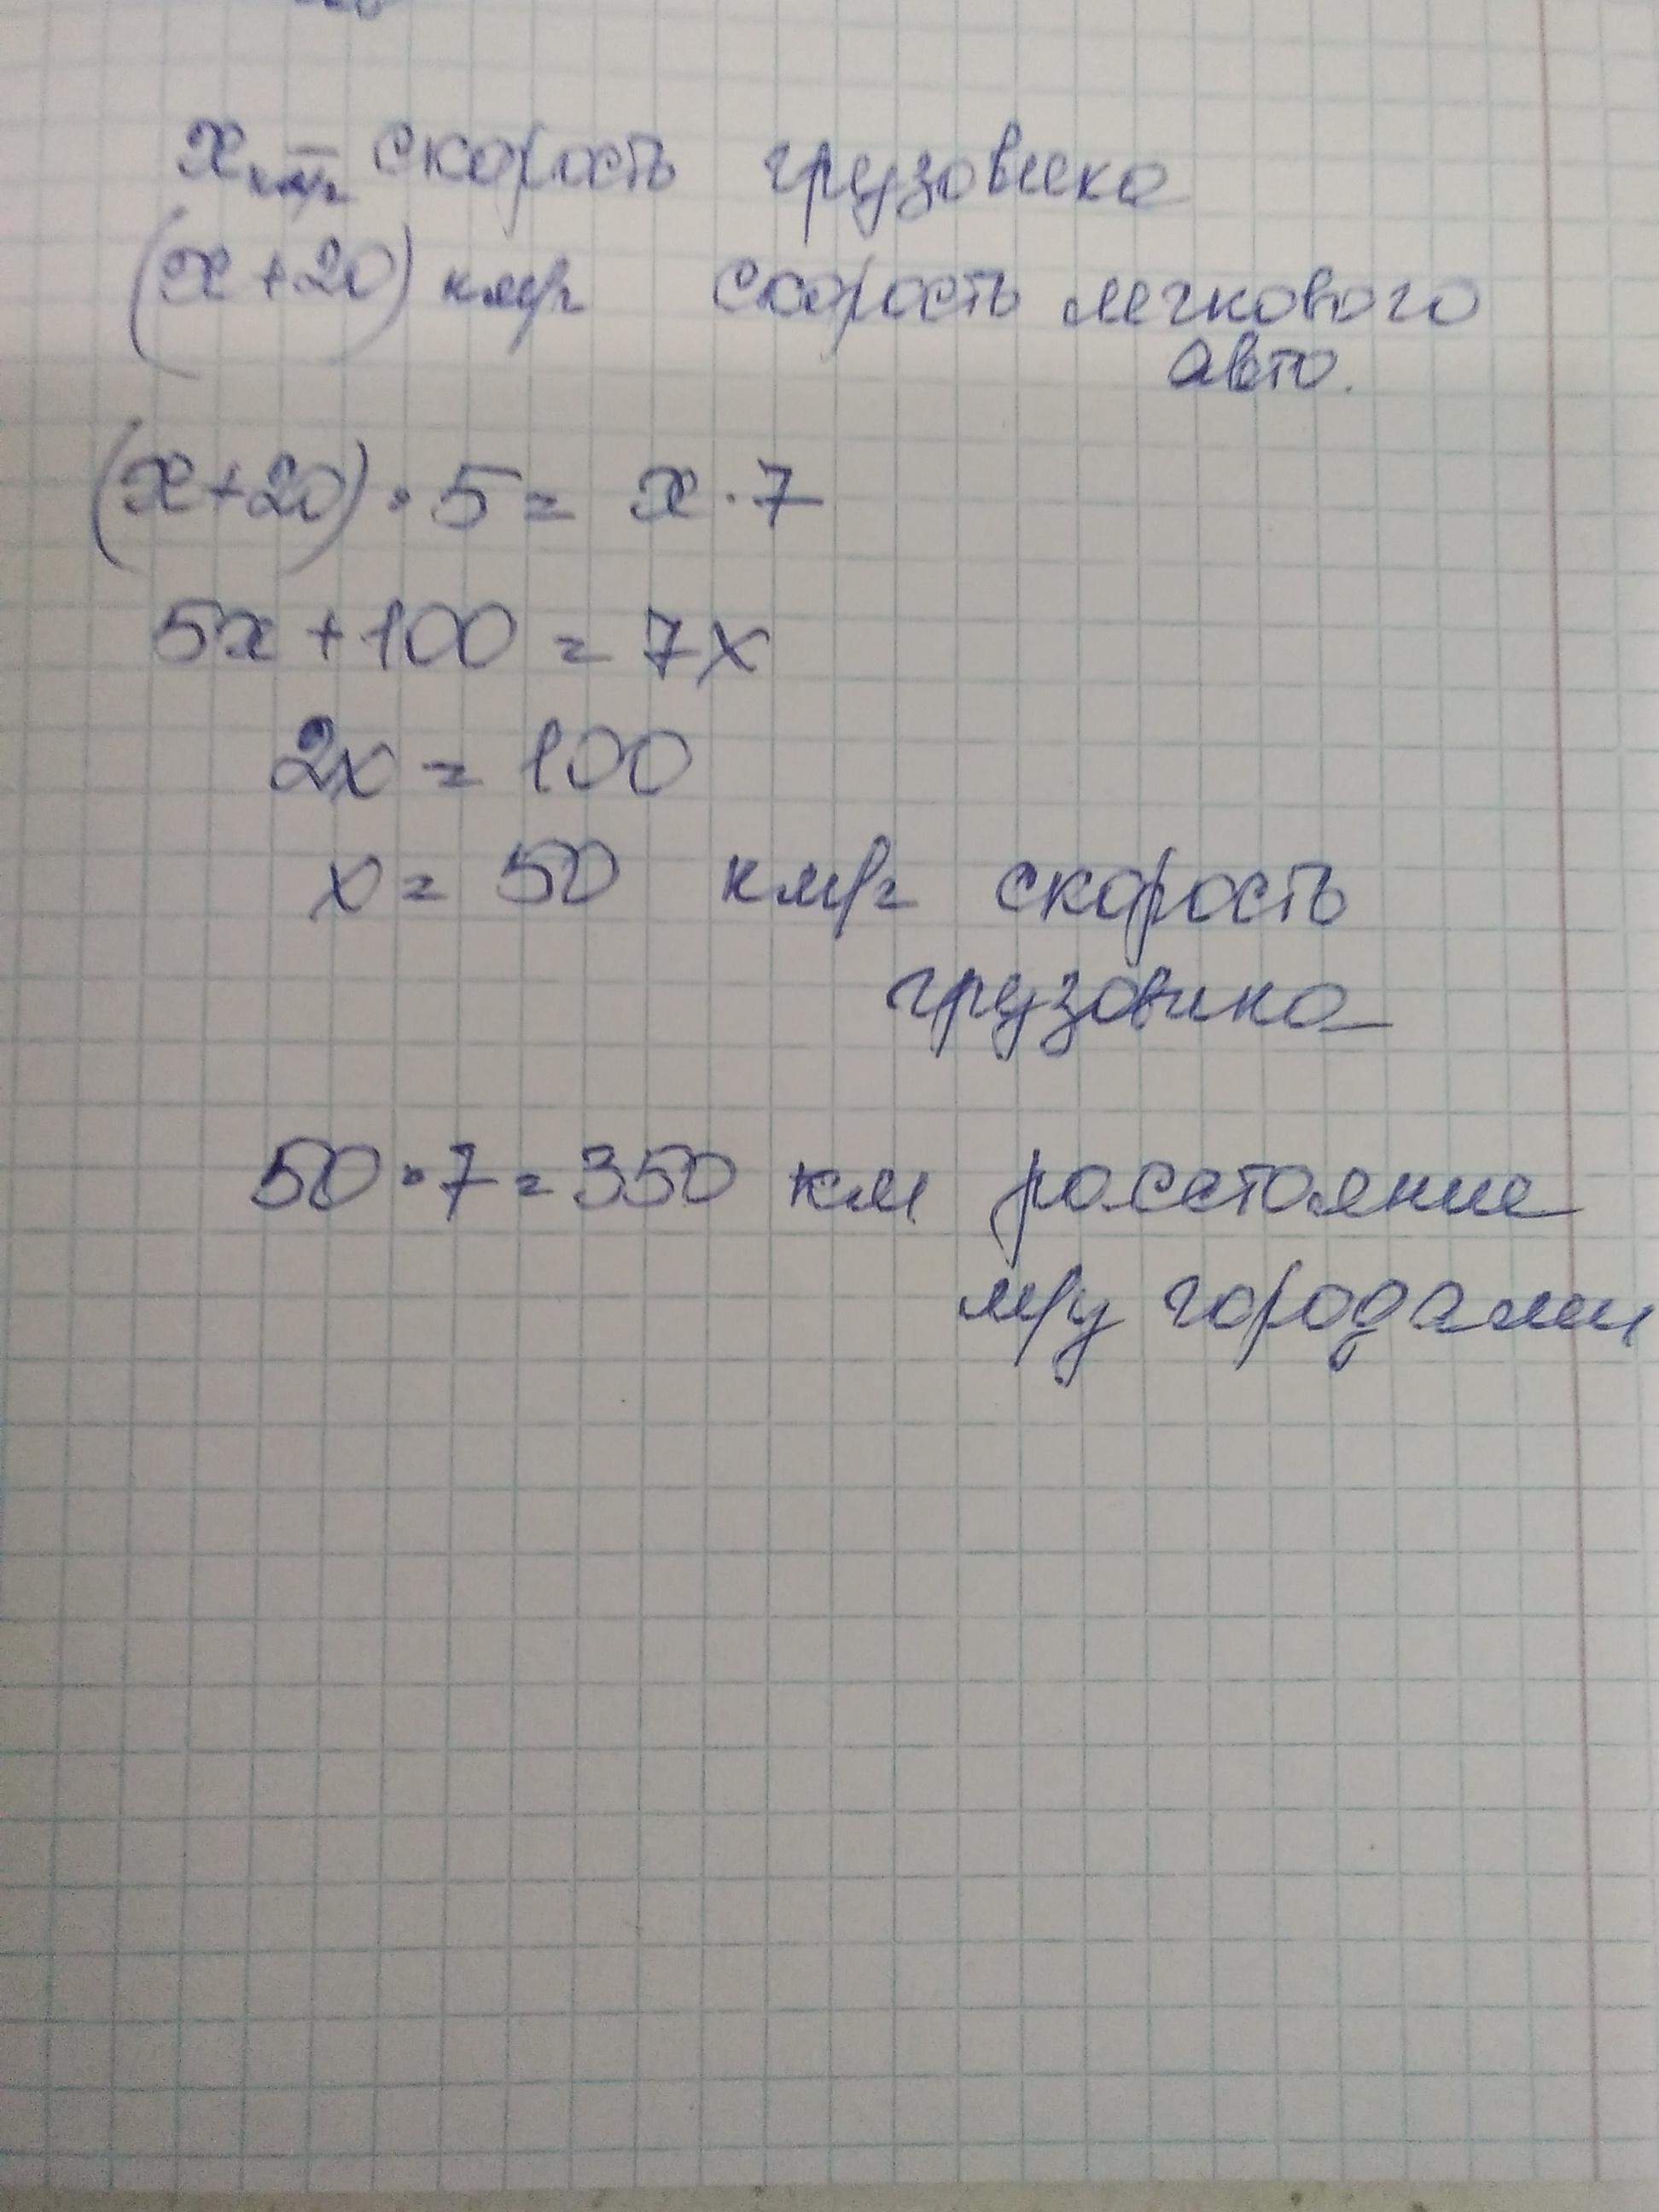 x км/ч — скорость грузовика
(x+20) км/ч скорость легкового
авто.
(x+20)·5 = x·7
5x+100 = 7x
2x = 100
x = 50 км/ч скорость
грузовика
50·7=350 км расстояние
м/у городами